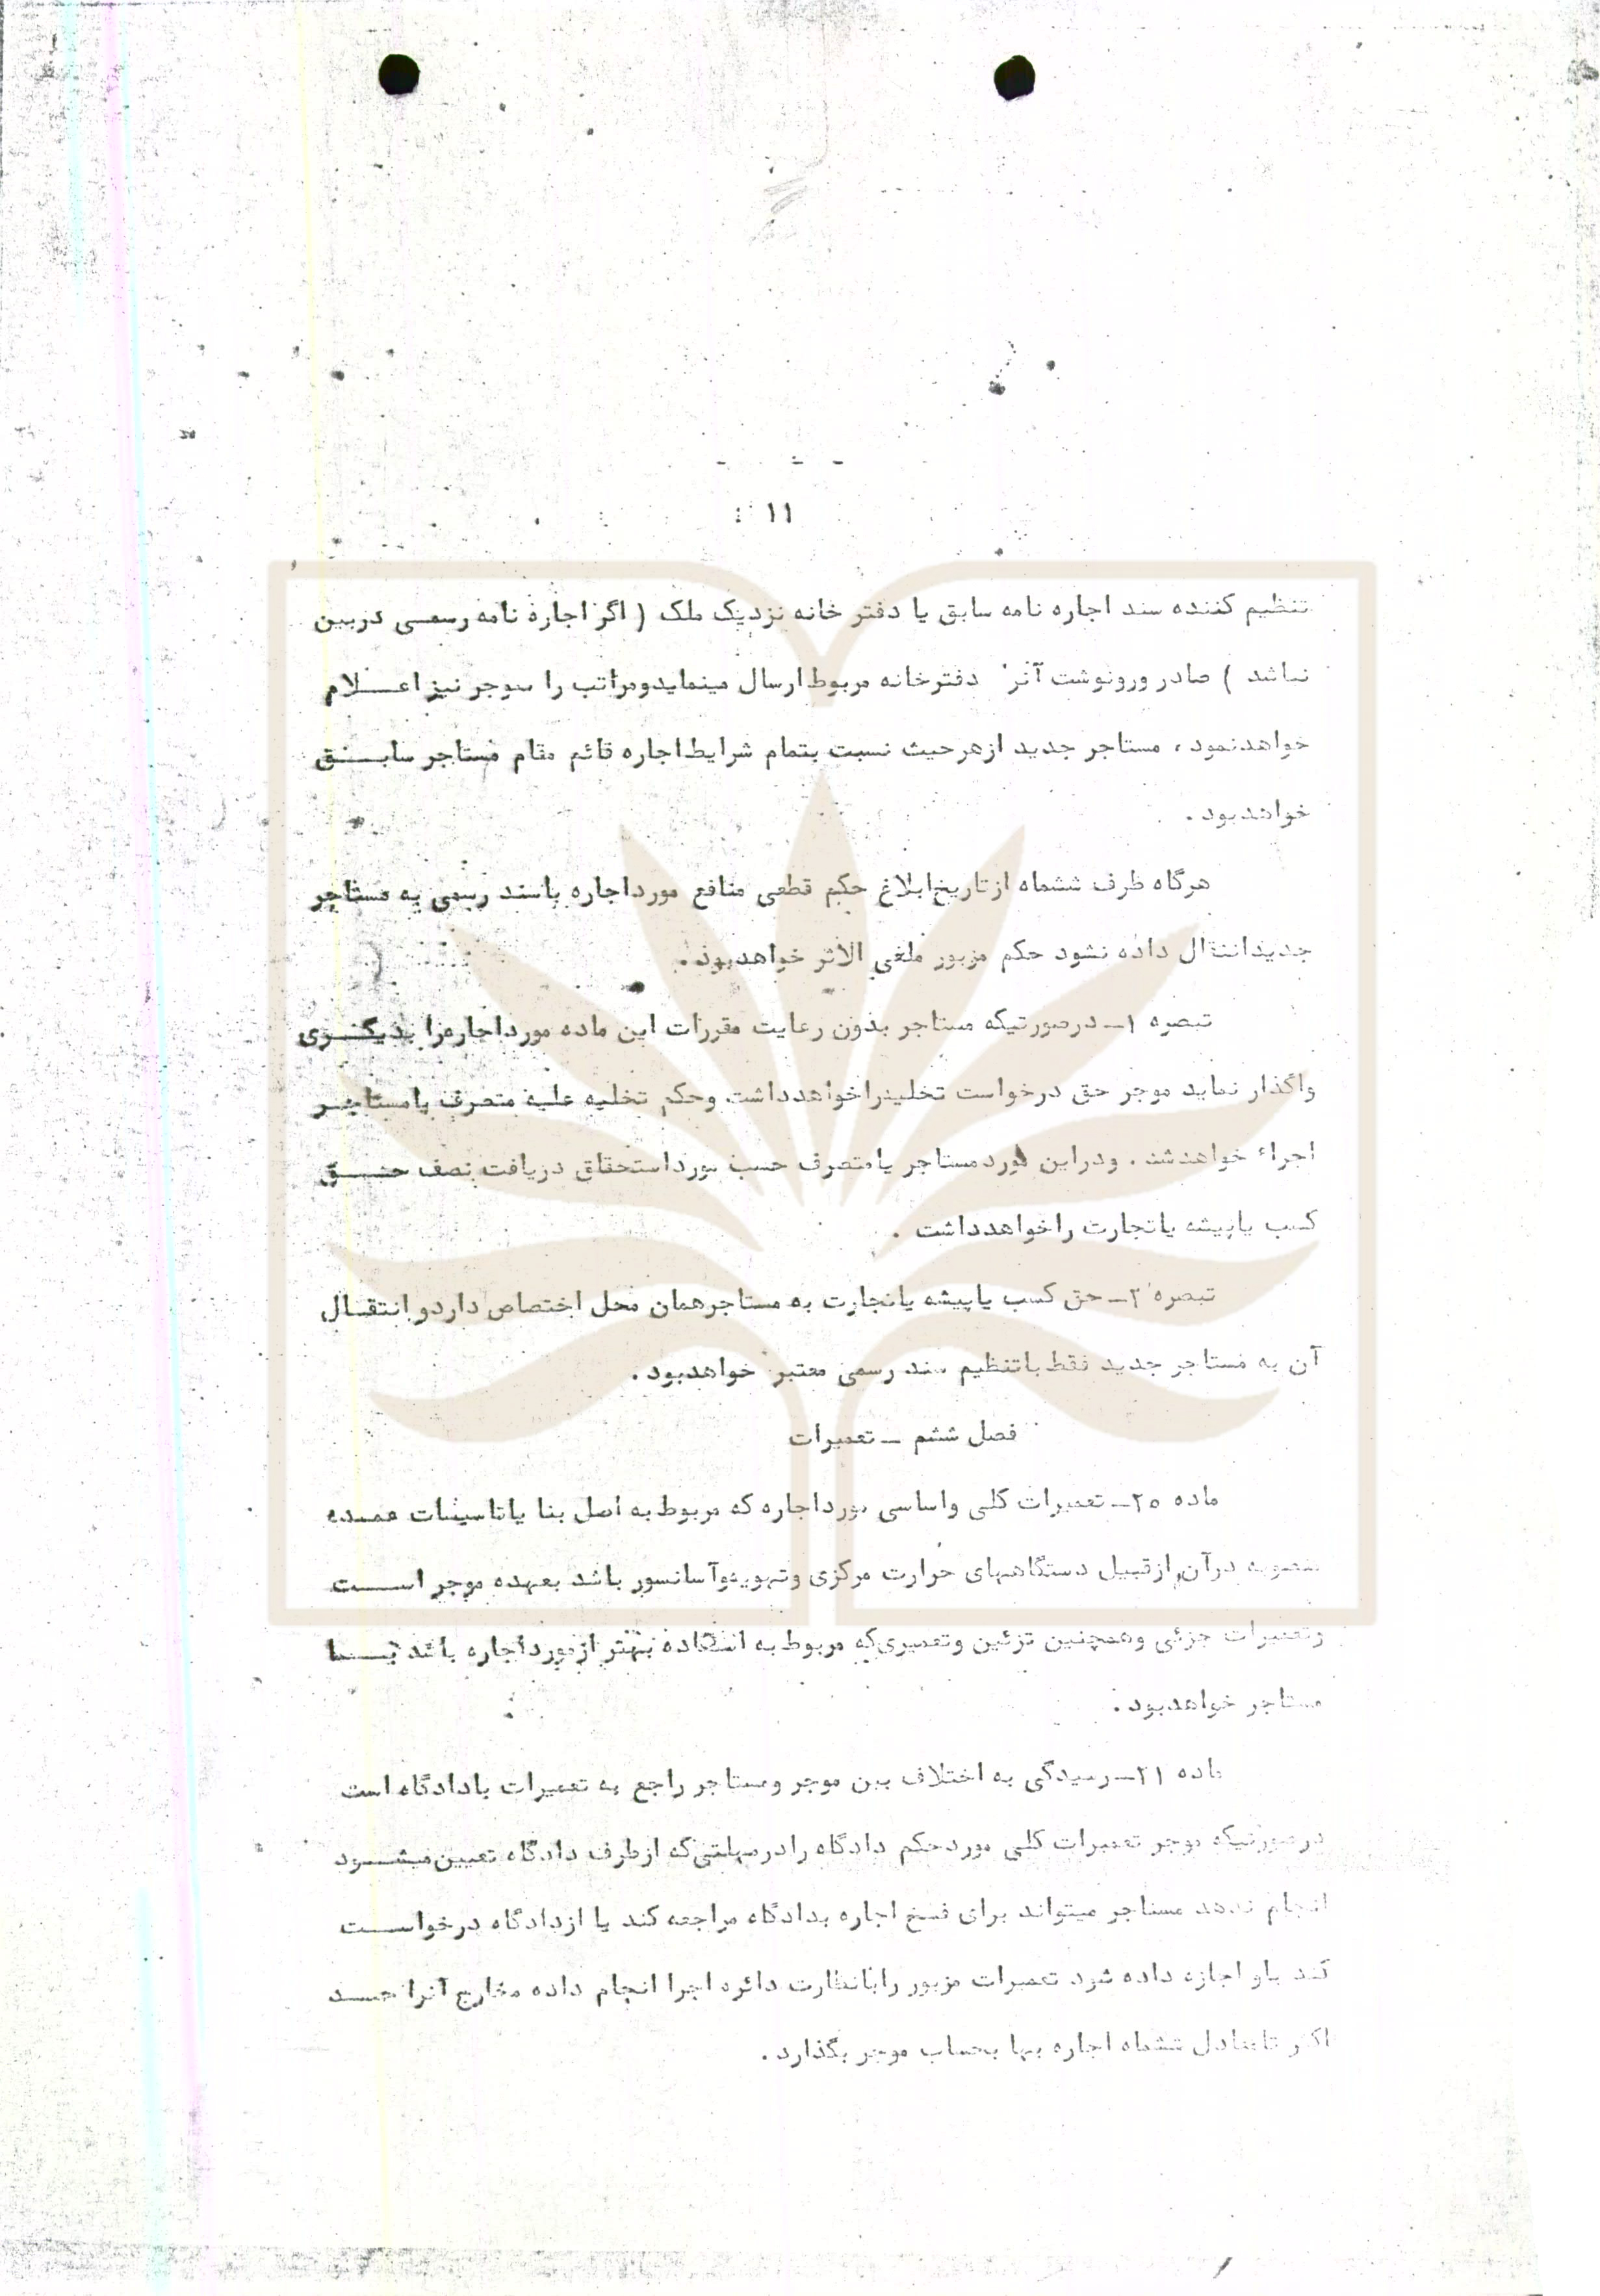 ۱۱ :
تنظیم کننده سند اجاره نامه سابق یا دفتر خانه نزدیک ملک ( اگر اجاره نامه رسمی دربین
نباشد ) صادر ورونوشت آنر دفترخانه مربوط ارسال مینماید ومراتب را بموجر نیز اعلام
خواهدنمود ، مستاجر جدید ازهرحیث نسبت بتمام شرایط اجاره قائم مقام مستاجر سابق
خواهدبود .
هرگاه ظرف ششماه ازتاریخ ابلاغ حکم قطعی منافع مورداجاره باسند رسمی به مستاجر
جدیدانتقال داده نشود حکم مزبور ملغی الاثر خواهدبود .
تبصره ۱ــ درصورتیکه مستاجر بدون رعایت مقررات این ماده مورداجاره را بدیگری
واگذار نماید موجر حق درخواست تخلیه راخواهدداشت وحکم تخلیه علیه متصرف یامستاجر
اجراء خواهدشد . ودراین موردمستاجر یامتصرف حسب مورداستحقاق دریافت نصف حق
کسب یاپیشه یاتجارت راخواهدداشت .
تبصره ۲ــ حق کسب یاپیشه یاتجارت به مستاجرهمان محل اختصاص داردو انتقال
آن به مستاجر جدید فقط باتنظیم سند رسمی معتبر خواهدبود .
فصل ششم ــ تعمیرات
ماده ۲۰ــ تعمیرات کلی واساسی مورداجاره که مربوط به اصل بنا یاتاسیسات عمده
منصوبه درآن ازقبیل دستگاههای حرارت مرکزی وتهویه وآسانسور باشد بعهده موجر است
وتعمیرات جزئی وهمچنین تزئین وتعمیری که مربوط به استفاده بهتر ازمورداجاره باشد بـــا
مستاجر خواهدبود .
ماده ۲۱ــ رسیدگی به اختلاف بین موجر ومستاجر راجع به تعمیرات بادادگاه است
درصورتیکه موجر تعمیرات کلی موردحکم دادگاه رادرمهلتی که ازطرف دادگاه تعیین میشود
انجام ندهد مستاجر میتواند برای فسخ اجاره بدادگاه مراجعه کند یا ازدادگاه درخواست
کند باو اجازه داده شود تعمیرات مزبور رابانظارت دائره اجرا انجام داده مخارج آنرا حد
اکثر تامعادل ششماه اجاره بها بحساب موجر بگذارد .